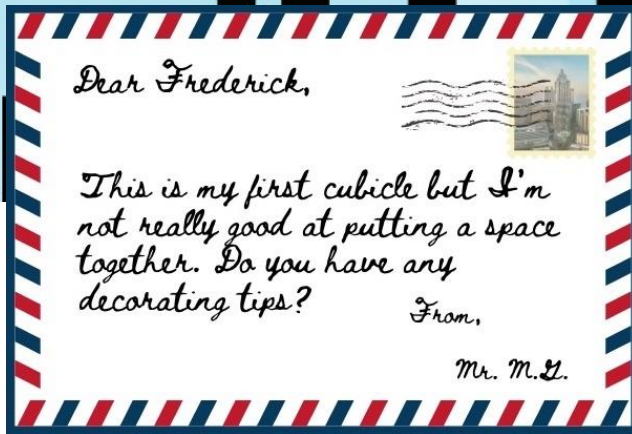 Dear Frederick,
This is my first cubicle but I'm
not really good at putting a space
together. Do you have any
decorating tips?
From,
Mr. M.G.